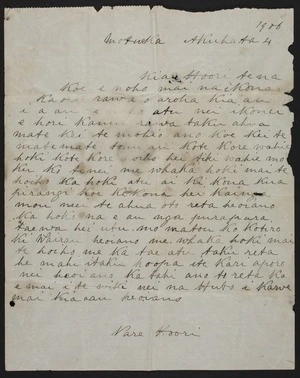 1906
Motueka Akuhata 4
Kia Hoori tena
koe e noho mai na ikona
ka nui rawa o aroha kia au
i a au e noho atu nei ikonei
e hori kanui rawa taku ahua
mate kei te mohio ano koe kei te
matemate tonu au kote kore wahie
hoki kote kore hei tiki wahie mo
ku ko tenei me whaka hoki mai te
hocho ka hoki atu ai ki kona kia
pirangi koe kokona hei kainga
mou nei te ahua oto reta heoiano
ka hoki na e au nga purapura
taewa hei utu mo matou ko Kotiro
ki Wairau heoiano me whaka hoki mai
te hocho me ka tae atu taku reta
he mahi itaku koopu ite kari aporo
nei heoiano ka tahi ano to reta ka
e mai i te wiki nei na Huto i kawe
mai kia au heoiano
Nare Hoori